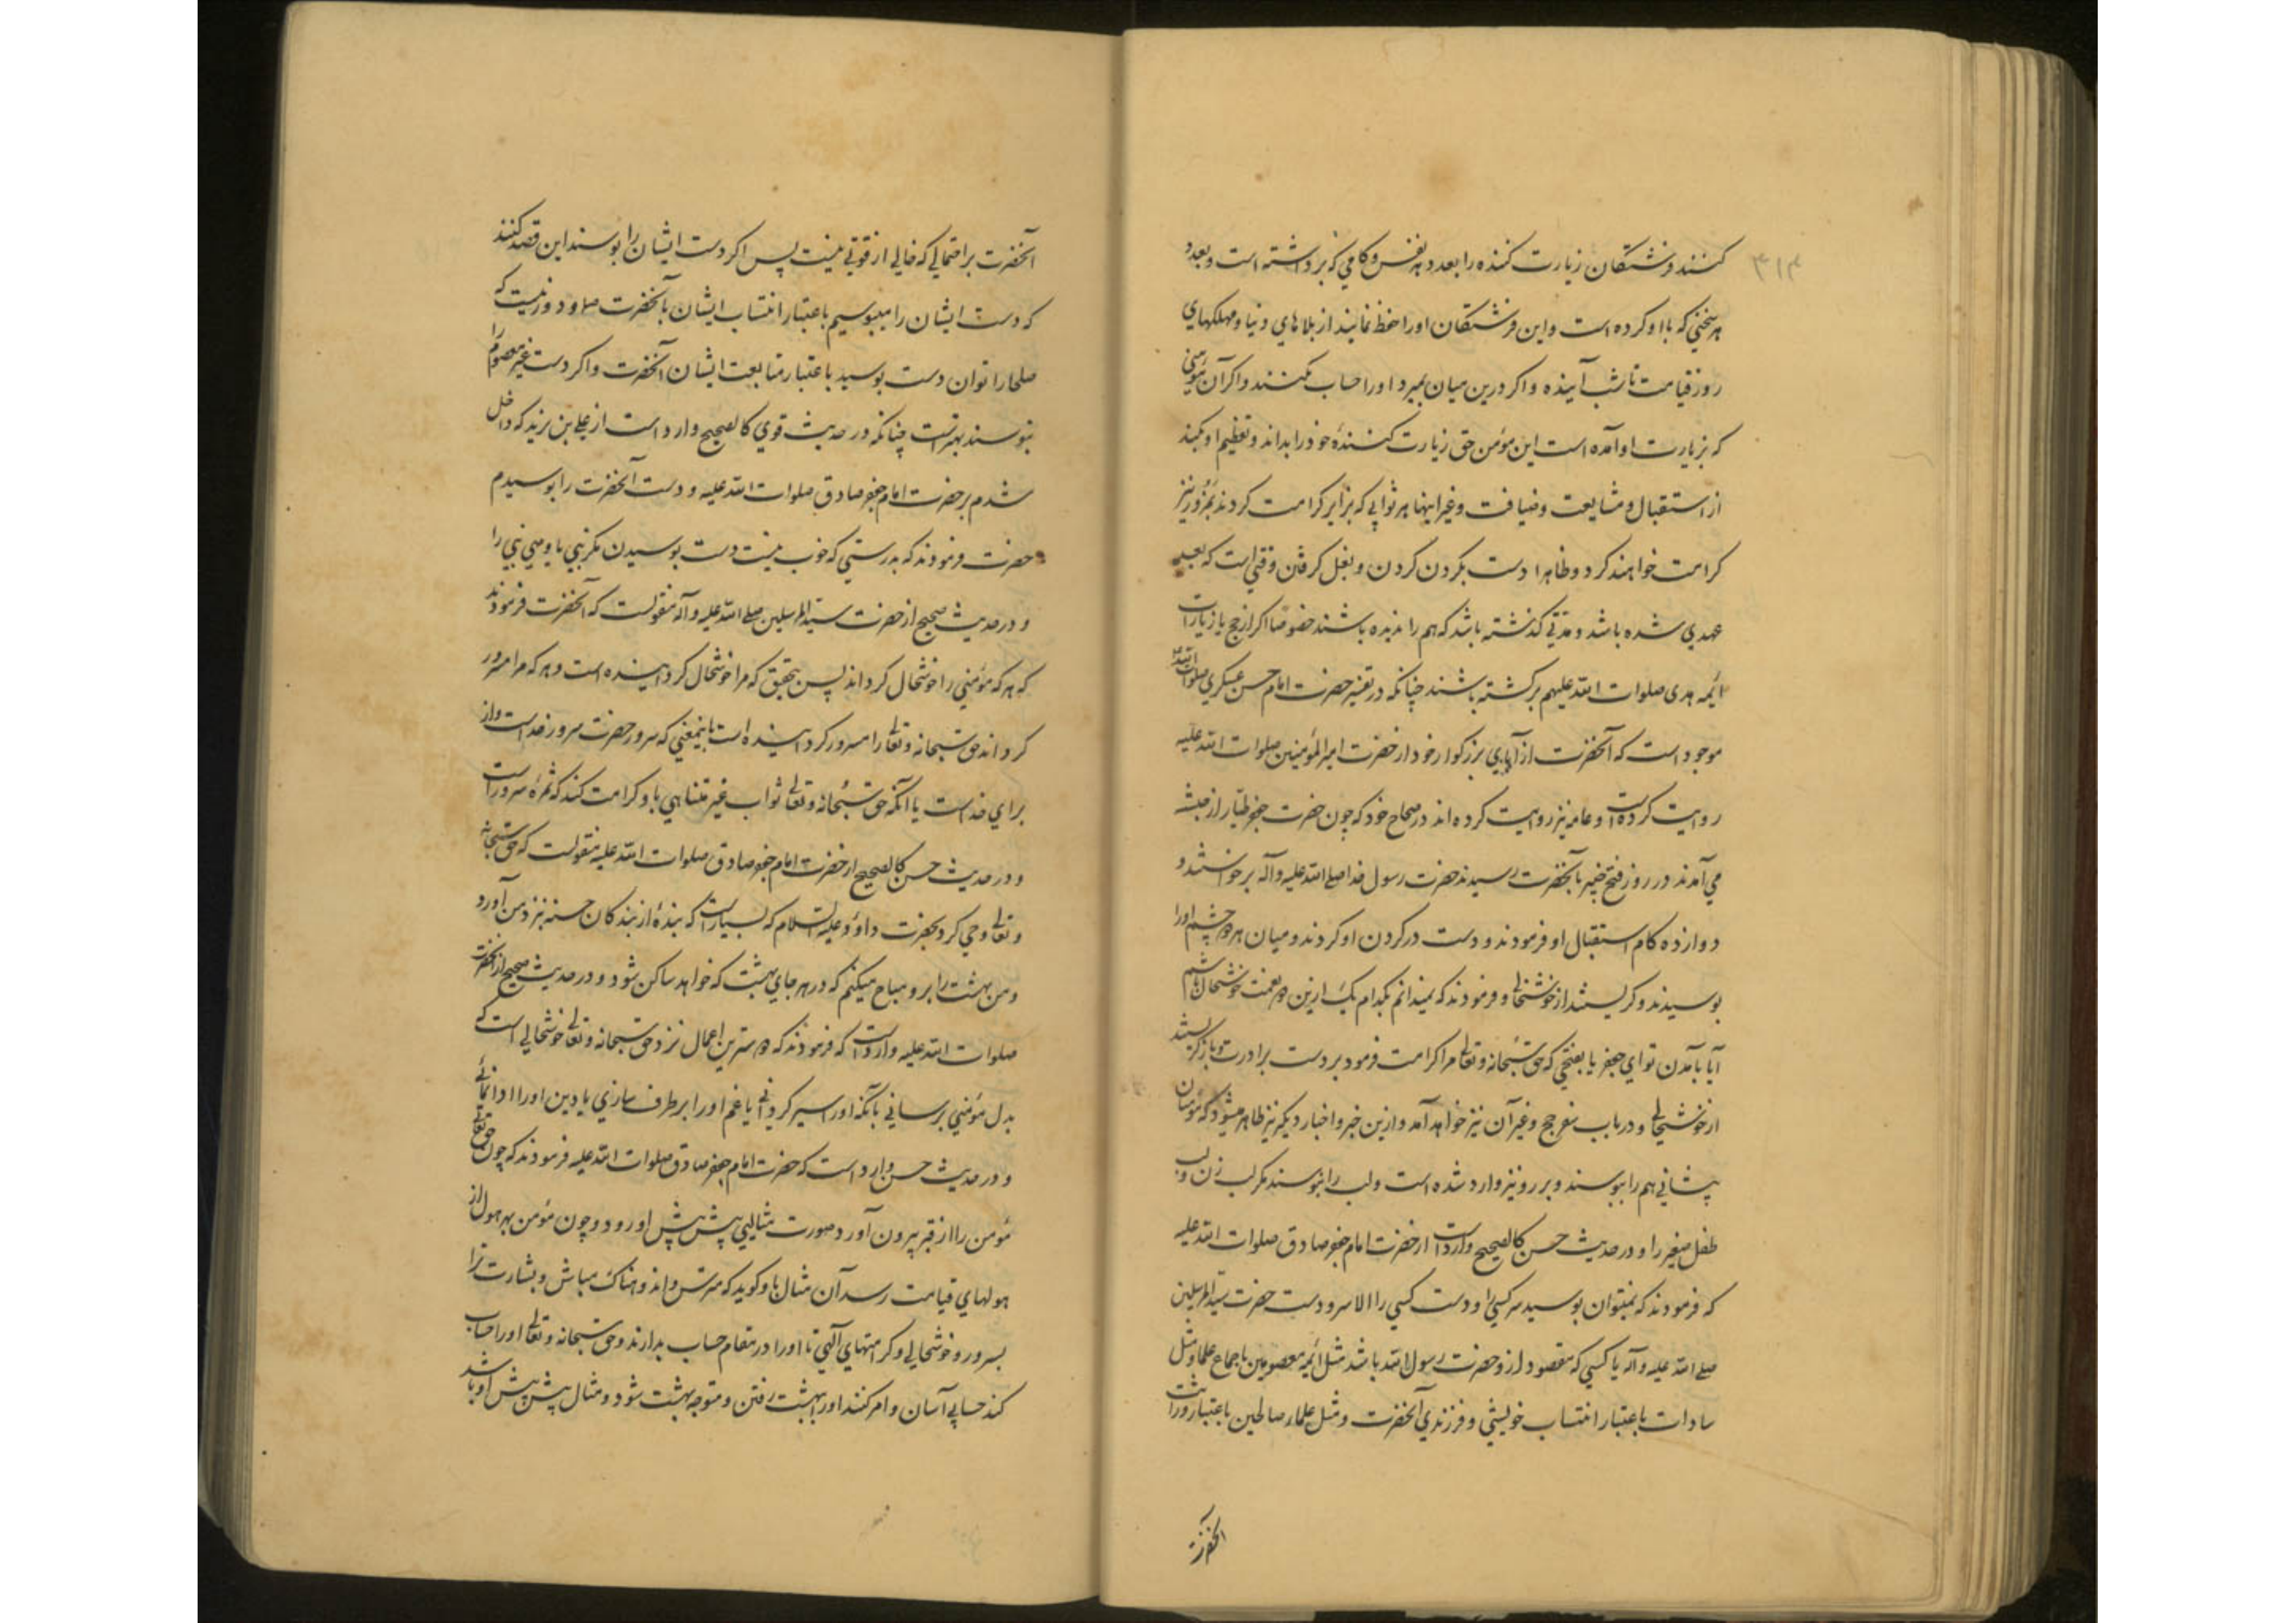 ۳۱۳
کنند فرشتکان زیارت کننده را بعدد هر نفس و کامی که برداشته است و بعدد
هر سخنی که با او کرده است و این فرشتکان اورا حفظ نمایند از بلاهای دنیا و مهلکهای
روز قیامت تا شب آینده و اکر درین میان بمیرد اورا حساب نکنند و اکر آن مؤمنی
که بزیارت او آمده است این مؤمن حق زیارت کنندۀ خود را بداند و تعظیم او بکند
از استقبال و مشایعت و ضیافت و غیر اینها هر ثوابی که بزایر کرامت کردند بمزور نیز
کرامت خواهند کرد و ظاهرا دست بکردن کردن و بغل کرفتن وقتی است که بعید
عهدی شده باشد و مدتی کذشته باشد که هم را ندیده باشند خصوصًا اکر از حج یا زیارات
ائمه هدی صلوات الله علیهم برکشته باشند چنانکه در تفسیر حضرت امام حسن عسکری صلوات الله علیه
موجود است که آنحضرت از آبای بزرکوار خود از حضرت امیر المؤمنین صلوات الله علیه
روایت کرده است و عامه نیز روایت کرده اند در صحاح خود که چون حضرت جعفر طیّار از حبشه
می آمدند در روز فتح خیبر بآنحضرت رسیدند حضرت رسول خدا صلی الله علیه و آله برخواستند و
دوازده کام استقبال او فرمودند و دست در کردن او کردند و میان هر دو چشم اورا
بوسیدند و کریستند از خوشحالی و فرمودند که نمیدانم بکدام یک ازین دو نعمت خوشحال باشم
آیا بآمدن تو ای جعفر یا بفتحی که حق سبحانه و تعالی مرا کرامت فرمود بر دست برادرت و باز کریستند
از خوشحالی و در باب سفر حج و غیر آن نیز خواهد آمد و ازین خبر و اخبار دیکر نیز ظاهر میشود که مؤمنان
پیشانی هم را ببوسند و بر رو نیز وارد شده است و لب را نبوسند مکر لب زن و لب
طفل صغیر را و در حدیث حسن کالصحیح وارد است از حضرت امام جعفر صادق صلوات الله علیه
که فرمودند که نمیتوان بوسید سر کسی را و دست کسی را الا سر و دست حضرت سیّد المرسلین
صلی الله علیه و آله یا کسی که مقصود ازو حضرت رسول الله باشد مثل ائمه معصومین باجماع علما و مثل
سادات باعتبار انتساب خویشی و فرزندی آنحضرت و مثل علماء صالحین باعتبار وراثت
آنحضرت
آنحضرت بر احتمالی که خالی از قوتی نیست پس اکر دست ایشان را بوسند این قصد کنند
که دست ایشان را میبوسیم باعتبار انتساب ایشان بآنحضرت صلو و دور نیست که
صلحا را توان دست بوسید باعتبار متابعت ایشان آنحضرت و اکر دست غیر معصوم را
نبوسند بهتر است چنانکه در حدیث قوی کالصحیح وارد است از علی بن مزید که داخل
شدم بر حضرت امام جعفر صادق صلوات الله علیه و دست آنحضرت را بوسیدم
حضرت فرمودند که بدرستی که خوب نیست دست بوسیدن مکر نبی یا وصی نبی را
و در حدیث صحیح از حضرت سیّد المرسلین صلی الله علیه و آله منقولست که آنحضرت فرمودند
که هر که مؤمنی را خوشحال کرداند پس بتحقیق که مرا خوشحال کردانیده است و هر که مرا مسرور
کرداند حق سبحانه و تعالی را مسرور کردانیده است باینمعنی که سرور حضرت سرور خداست و از
برای خداست یا آنکه حق سبحانه و تعالی ثواب غیر متناهی باو کرامت کند که ثمرۀ سرور است
و در حدیث حسن کالصحیح از حضرت امام جعفر صادق صلوات الله علیه منقولست که حق سبحانه
و تعالی وحی کرد بحضرت داؤد علیه السلام که بسیار است که بندۀ از بندکان حسنه بنزد من آورد
و من بهشت را برو مباح میکنم که در هر جای بهشت که خواهد ساکن شود و در حدیث صحیح از آنحضرت
صلوات الله علیه وارد است که فرمودند که دوسترین اعمال نزد حق سبحانه و تعالی خوشحالی است که
بدل مؤمنی برسانی بآنکه اورا سیر کردانی یا غم اورا برطرف سازی یا دین اورا ادا نمائی
و در حدیث حسن وارد است که حضرت امام جعفر صادق صلوات الله علیه فرمودند که چون حق تعالی
مؤمن را از قبر بیرون آورد صورت مثالیی پیش پیش او رود و چون مؤمن بهر هول از
هولهای قیامت رسد آن مثال باو کوید که مترس و اندوهناک مباش و بشارت ترا
بسرور و خوشحالی و کرامتهای الهی تا اورا در مقام حساب بدارند و حق سبحانه و تعالی اورا حساب
کند حسابی آسان و امر کنند اورا ببهشت رفتن و متوجه بهشت شود و مثال پیش پیش او باشد